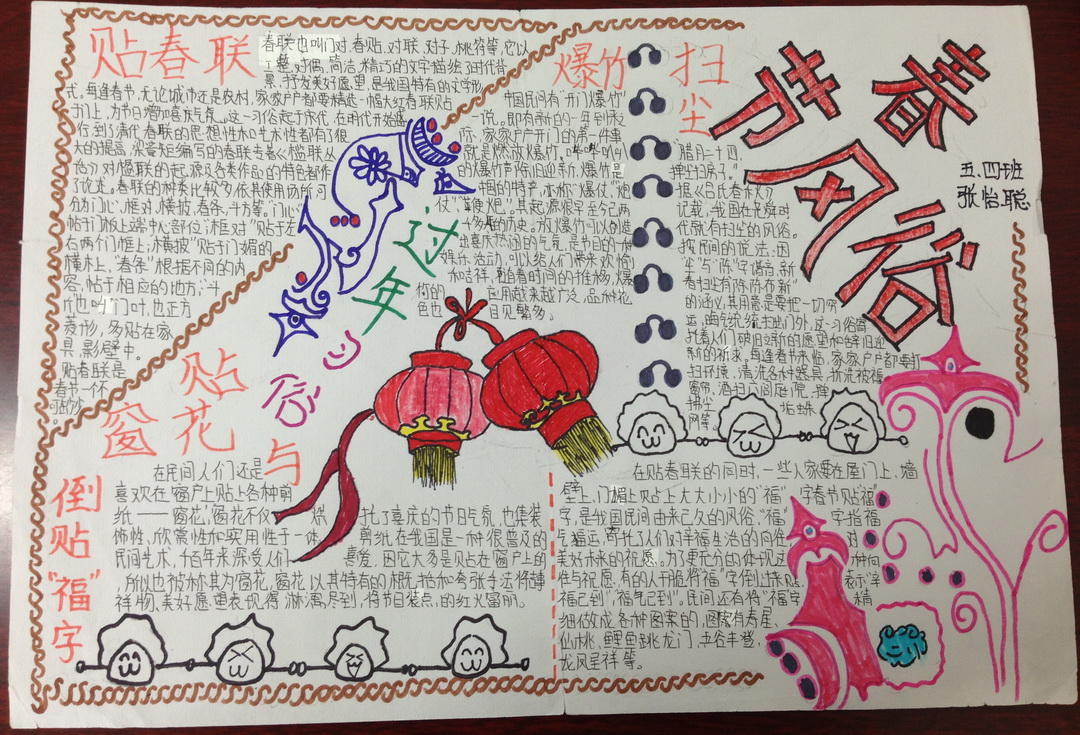 春节风俗
五.四班
张怡聪
贴春联
春联也叫门对、春贴、对联、对子、桃符等，它以
工整、对偶、简洁、精巧的文字描绘了时代背
景，抒发美好愿望，是我国特有的文学形
式。每逢春节，无论城市还是农村，家家户户都要精选一幅大红春联贴
于门上，为节日增加喜庆气氛。这一习俗起于宋代，在明代开始盛
行，到清代春联的思想性和艺术性都有了很
大的提高，梁章矩编写的春联专著《槛联丛
话》对楹联的起源及各类作品的特色都作
了论述。春联的种类比较多，依其使用场所，可
分为门心、框对、横披、春条、斗方等。“门心”
帖于门板上端中心部位；“框对”贴于左
右两个门框上；“横披”贴于门媚的
横木上，“春条”根据不同的内
容，帖于相应的地方；“斗
斤”也叫“门叶，也正方
菱形，多贴在家
具，影壁中。
贴春联是
春节一个不
可缺少
爆竹
中国民间有“开门爆竹”
一说。即有新的一年到来之
际，家家户户开门的第一件事
就是燃放爆竹，哔哔叭叭
的爆竹声除旧迎新，爆竹是
中国的特产，亦称“爆仗”“炮
仗”“鞭炮”。其起源很早，至今已两
千多年的历史。放爆竹可以创造
出喜庆热闹的气氛，是节日的一种
娱乐活动，可以给人们带来欢愉
和吉祥，随着时间的推移，爆
竹的应用越来越广泛，品种花
色也日见繁多。
扫尘
“腊月二十四，
掸尘扫房子”
据《吕氏春秋》
记载，我国在尧舜时
代就有扫尘的风俗。
按民间的说法：因
“尘”与“陈”字谐音，新
春扫尘有“除陈布新”
的涵义，其用意是要把一切穷
运、晦气统统扫出门外。这一习俗寄
托着人们破旧立新的愿望和辞旧迎
新的祈求。每逢春节来临，家家户户都要打
扫环境，清洗各种器具，拆洗被褥
窗帘，洒扫六闾庭院，掸
拂尘垢蛛
网等。
过年
贴窗花与
倒贴“福”字
在民间人们还是
喜欢在窗户上贴上各种剪
纸——窗花，窗花不仅烘托了喜庆的节日气氛，也集装
饰性、欣赏性和实用性于一体。剪纸在我国是一种很普及的
民间艺术，千百年来深受人们喜爱，因它大多是贴在窗户上的
，所以也被称其为窗花。窗花以其特有的概括和夸张手法将吉
祥物、美好愿望表现得淋漓尽致，将节日装点的红火富丽。
在贴春联的同时，一些人家要在屋门上、墙
壁上、门楣上贴上大大小小的“福”字。春节贴“福”
字，是我国民间由来已久的风俗。“福”字指福
气、福运，寄托了人们对幸福生活的向往，对
美好未来的祝愿。为了更充分的体现这种向
往与祝愿，有的人干脆将“福”字倒过来贴，表示“幸
福已到”，“福气已到”。民间还有将“福”字精
细做成各种图案的，图案有寿星、
仙桃、鲤鱼跳龙门、五谷丰登、
龙凤呈祥等。